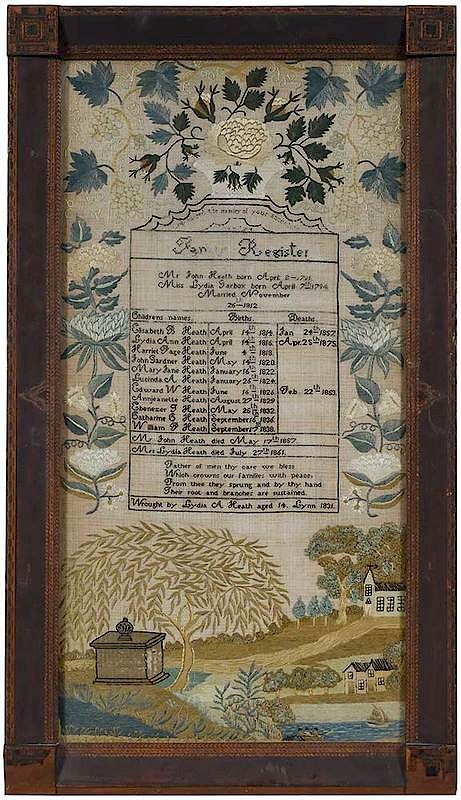 the memory of your
Family Register
Mr John Heath born April 8 1791
Miss Lydia Tarbox born April 7th 1794
Married November
26 1812
Childrens names. Births. Deaths.
Elisabeth B Heath April 14th 1814. Jan 24th 1857.
Lydia Ann Heath April 14th 1816. Apr. 25th 1873.
Harriet Page Heath June 4th 1818.
John Gardner Heath May 14th 1820.
Mary Jane Heath January 16th 1822.
Lucinda A Heath January 26th 1824.
Edward W Heath June 16th 1826. Feb 22th 1863.
Annjeanette Heath August 27th 1829.
Ebenezer Heath May 26th 1832.
Catharine E Heath September 1836.
William P Heath September 1838.
Mr John Heath died May 17th 1857.
Mrs Lydia Heath died July 27th 1861.
Father of men thy care we bless
Which crowns our families with peace,
From thee they sprung and by thy hand
Their root and branches are sustained.
Wrought by Lydia A Heath aged 14. Lynn 1831.